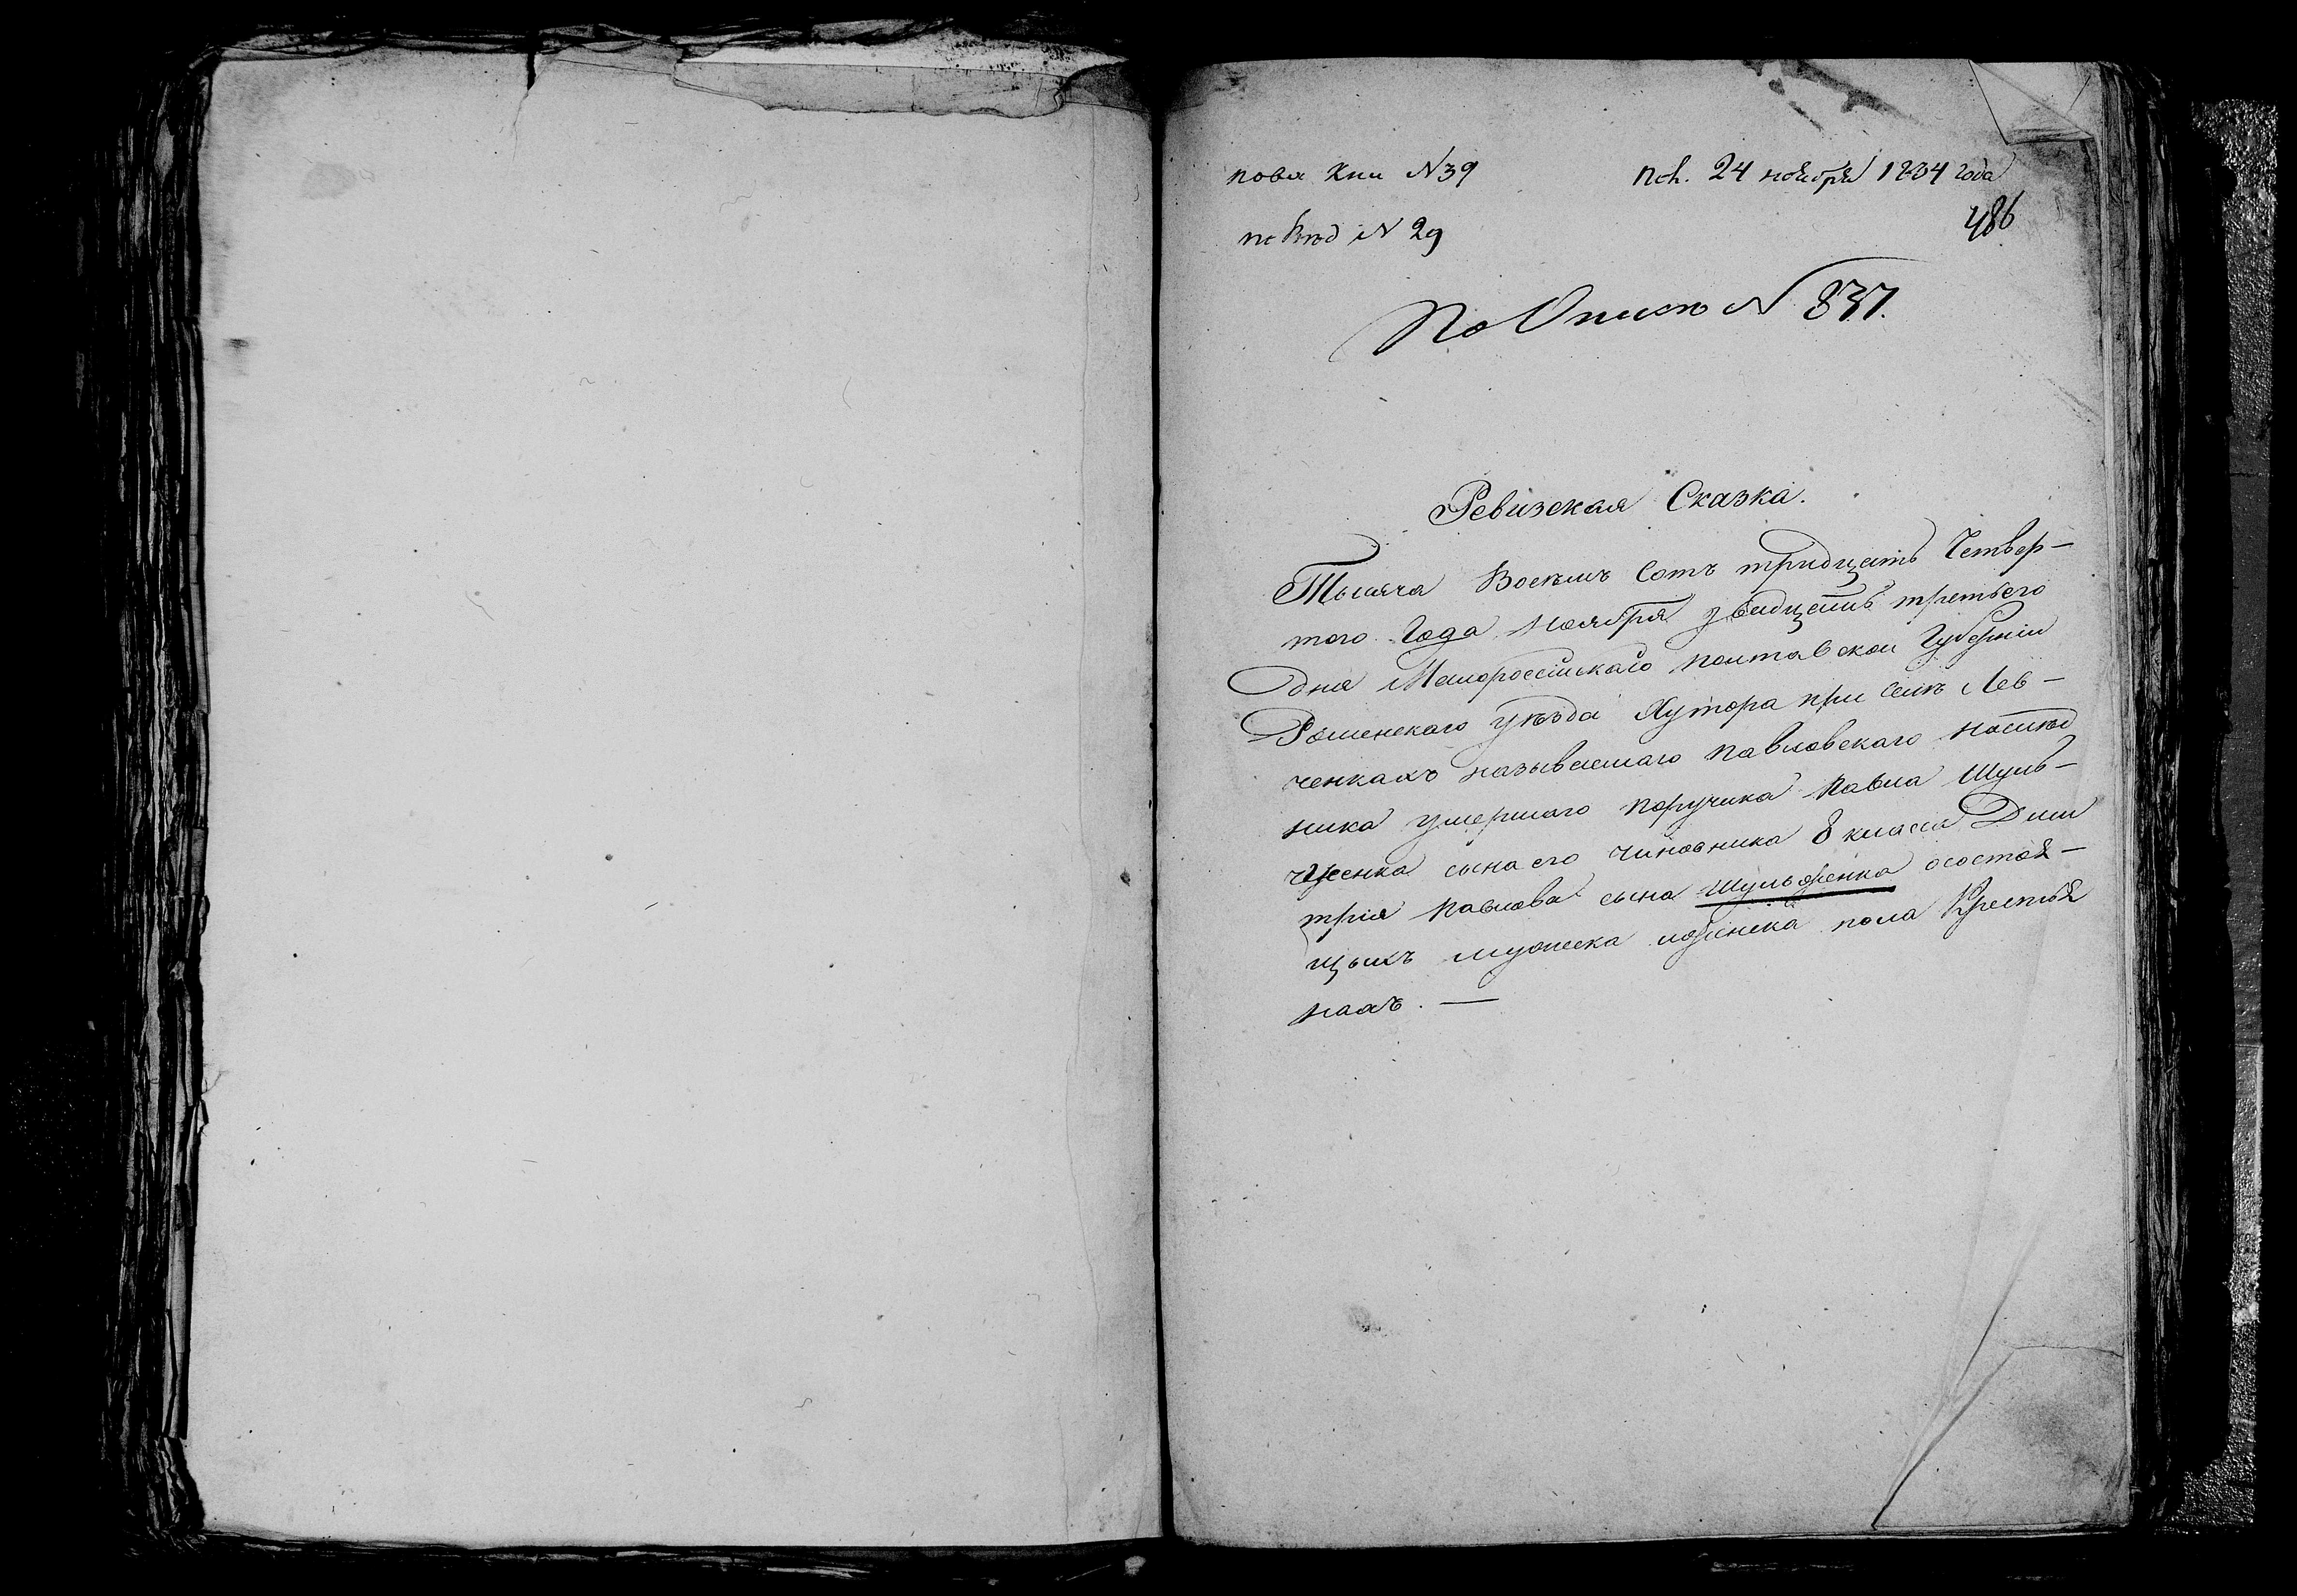 по вх кни N 39
пол. 24 ноября 1834 года
486
по вход N 29
По Описи N 837.
Ревизская Сказка.
Тысяча Восемь Сотъ тридцать Четвер-
того Года Ноября двадцать третьего
дня Малоросійскаго полтавской Губерніи
Роменскаго уѣзда Хутора при Селѣ Лев-
ченкахъ называемаго павловскаго наслѣд
ника умершаго поручика Павла Шуль-
женка сына его чиновника 8 класса Дми
трія Павлова сына Шульженка осостоя-
щыхъ мужеска иженска пола Крестья
нахъ. —